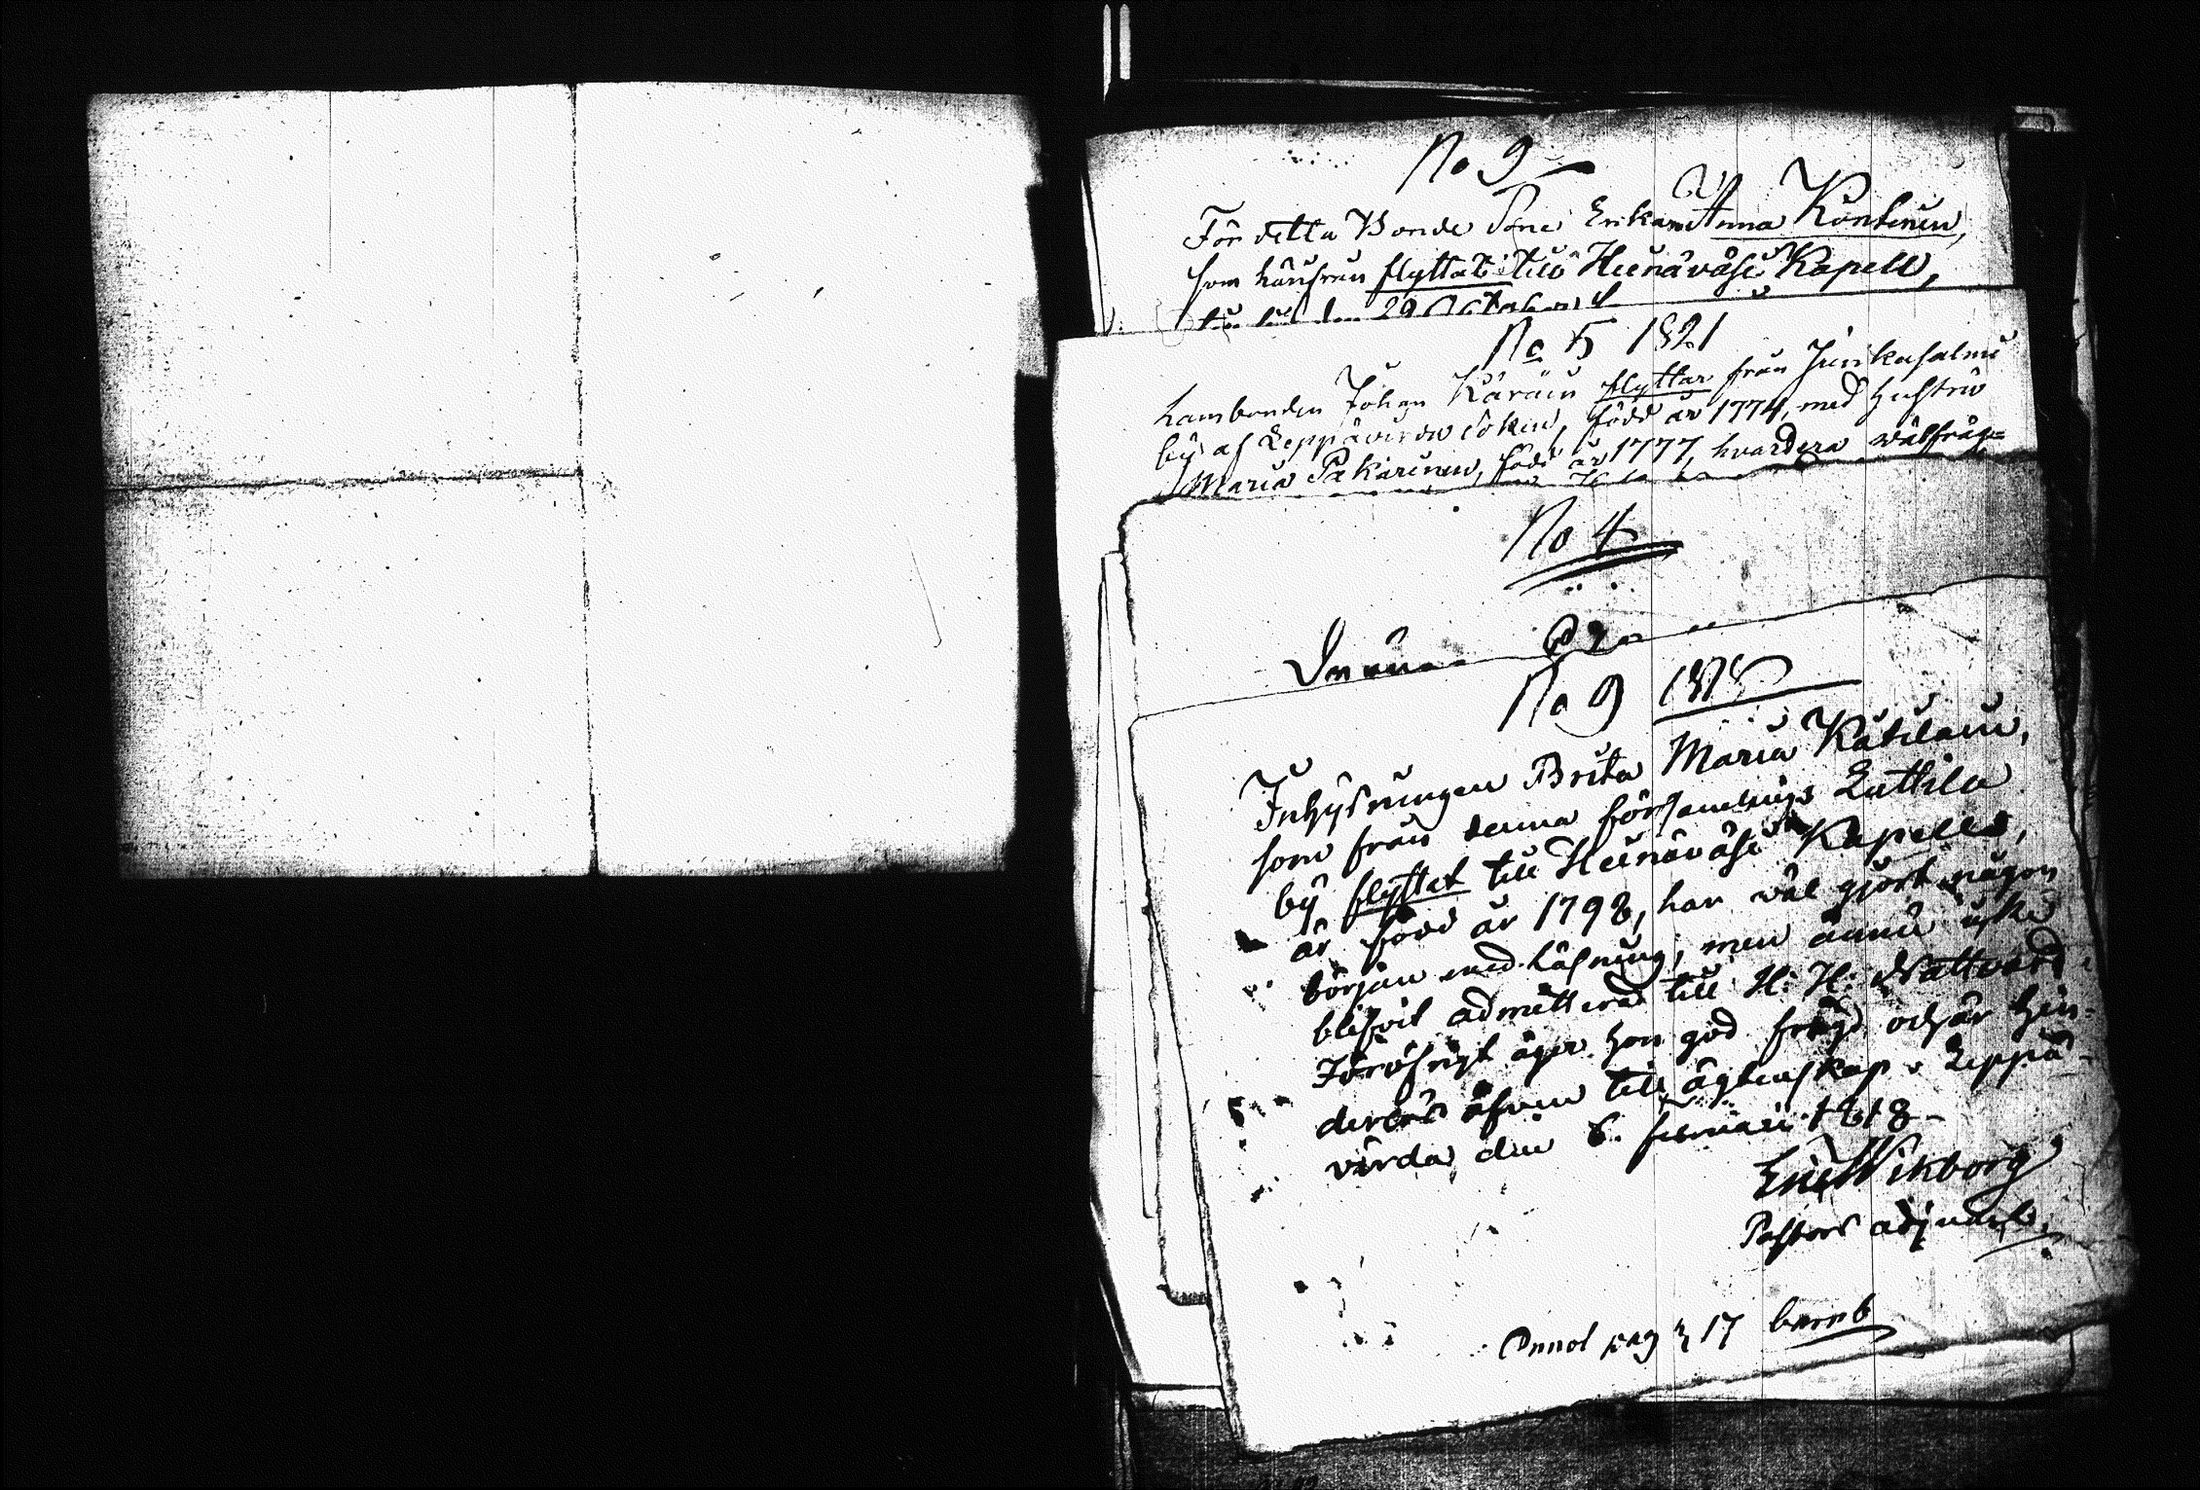 No 9
För detta Bonde Sone Enkan Anna Kontinen,
som härifrån flyttat till Heinäväsi Kapell,
den 29 October
No 5 1821
Lambonden Johan Käräin flyttar från Juikasalmi
by af Leppävirda Sokn, född år 1774, med hustru
Maria Pakarinen, född år 1777, hvardera wälfräg=
No 4
No 9 1818
Inhysningen Brita Maria Kätilain,
som från denna församlings Luttila
by flyttat till Heinäväsi Kapell,
är född år 1798, har wäl gjort någon
början med läsning, men ännu icke
blifvit admitterad till H: H: Nattvard
Föröfrigt äger hon god frägd och är hin=
derlös äfven till ägtenskap. Leppä=
virda den 6. februarii 1818-
Eric Wikborg
Pastors adjunct.
Annot pag 317